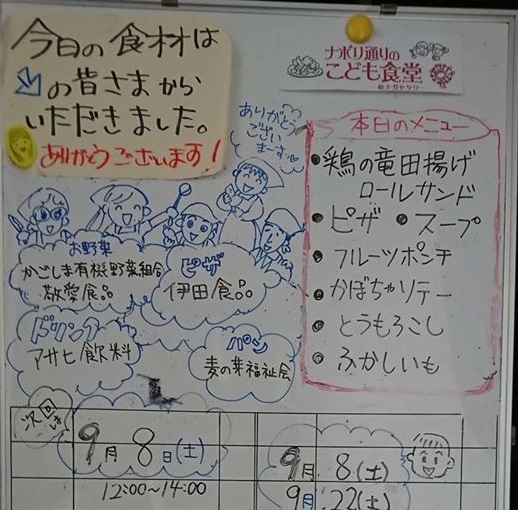 今日の食材は
の皆さまから
いただきました。
ありがとうございます！
ナポリ通りの
こども食堂
ありがとう
ござい
まーす
本日のメニュー
鶏の竜田揚げ
ロールサンド
ピザ スープ
フルーツポンチ
かぼちゃソテー
とうもろこし
ふかしいも
お野菜
かごしま有機野菜組合
敬愛食品
ピザ
伊田食品
ドリンク
アサヒ飲料
パン
麦の芽福祉会
次回は
9月8日(土)
12:00～14:00
9月8(土)
9月22(土)